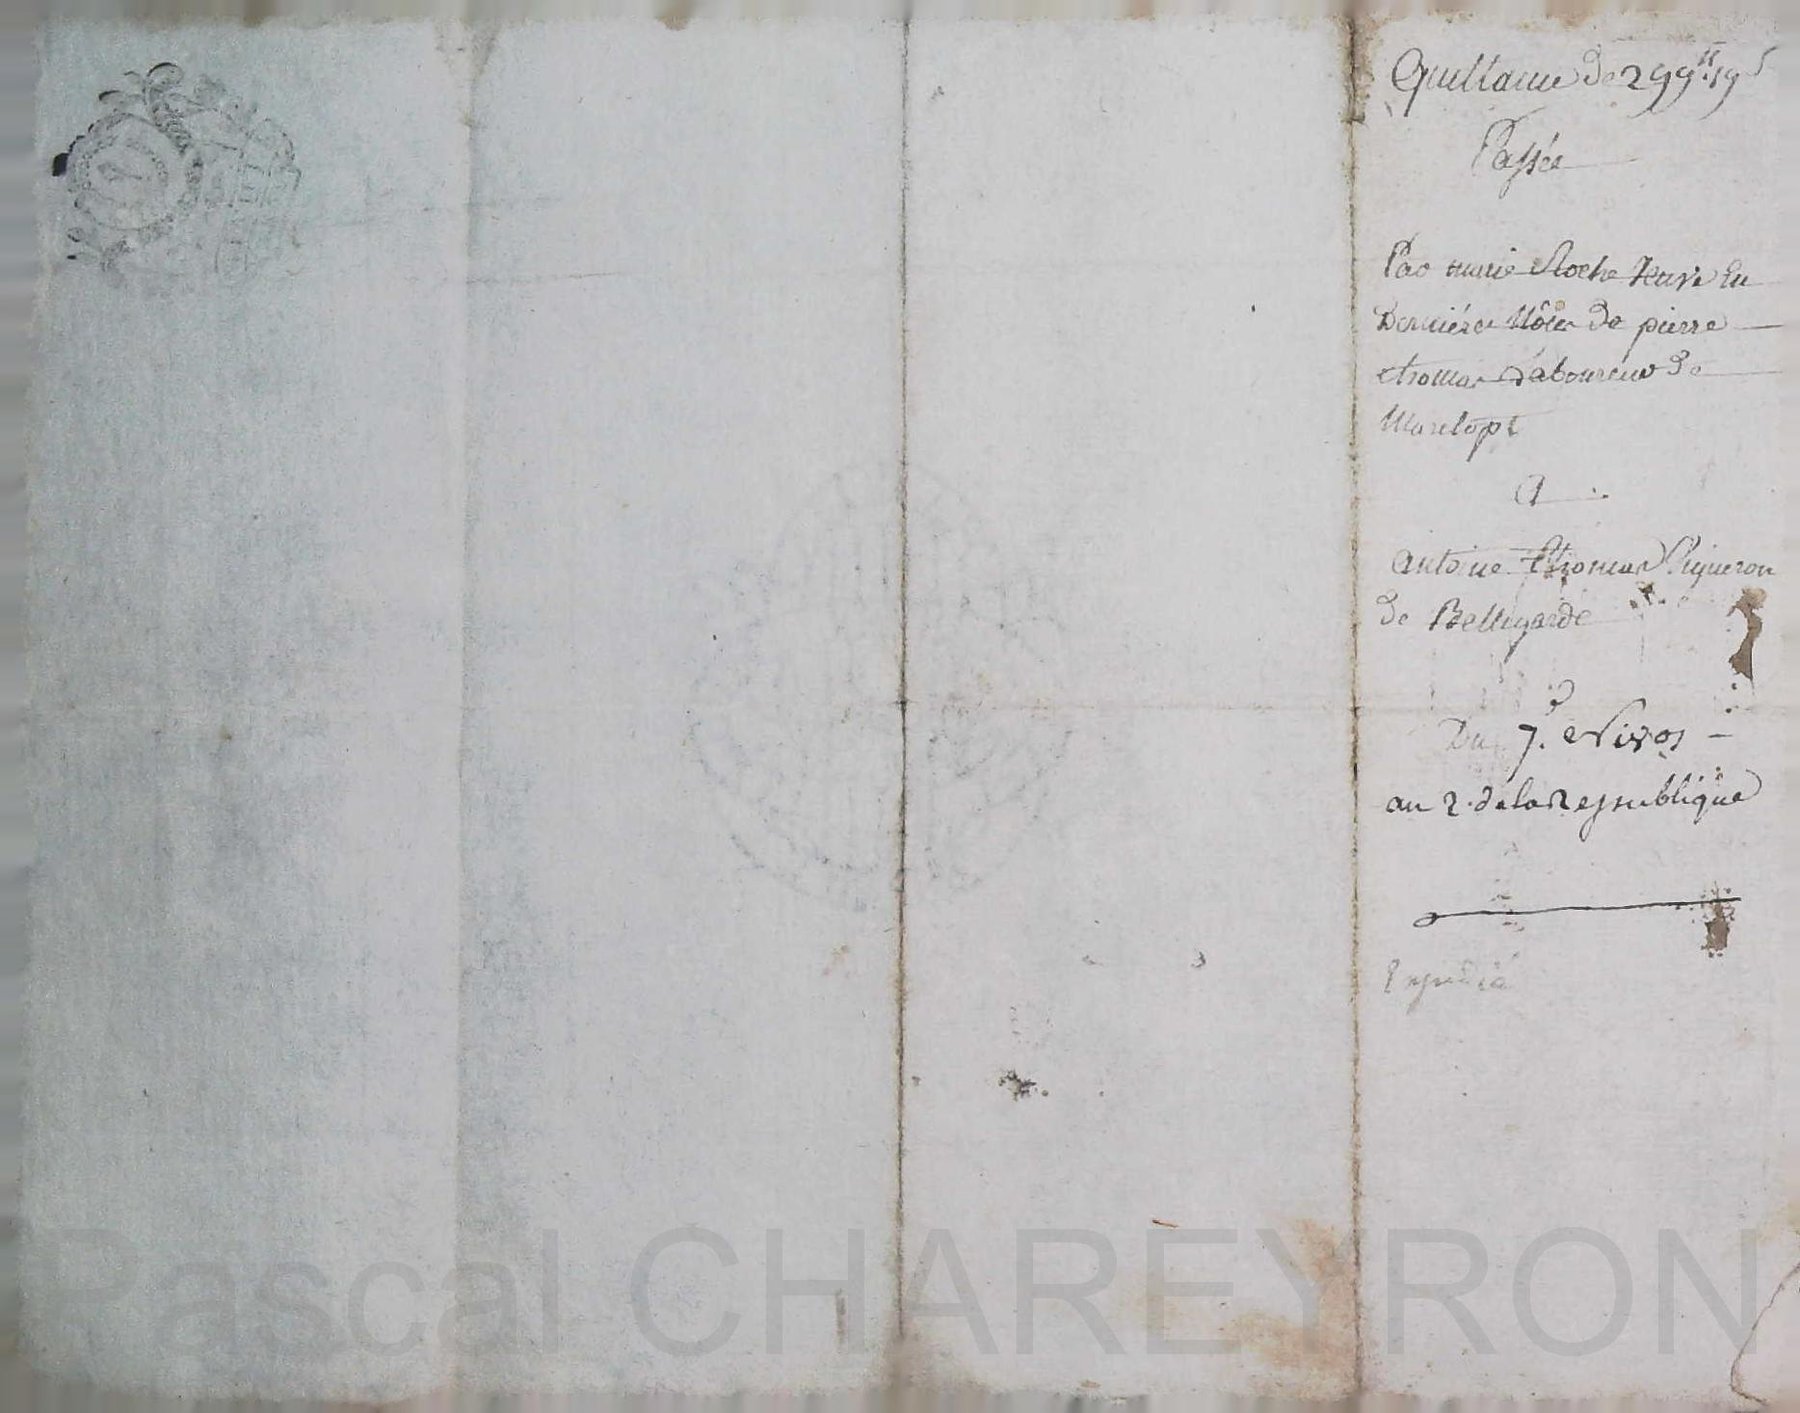 Quittance de 299ᵗᵗ 19ˢ
Passée
Par marie Roche Veuve En
Derniéres Nôces de pierre
thomas Laboureur de
Marclopt
A
antoine thomas Vigneron
de Bellegarde
Du 7. Nivos
an 2. de la Republique
Expedié
Pascal CHAREYRON